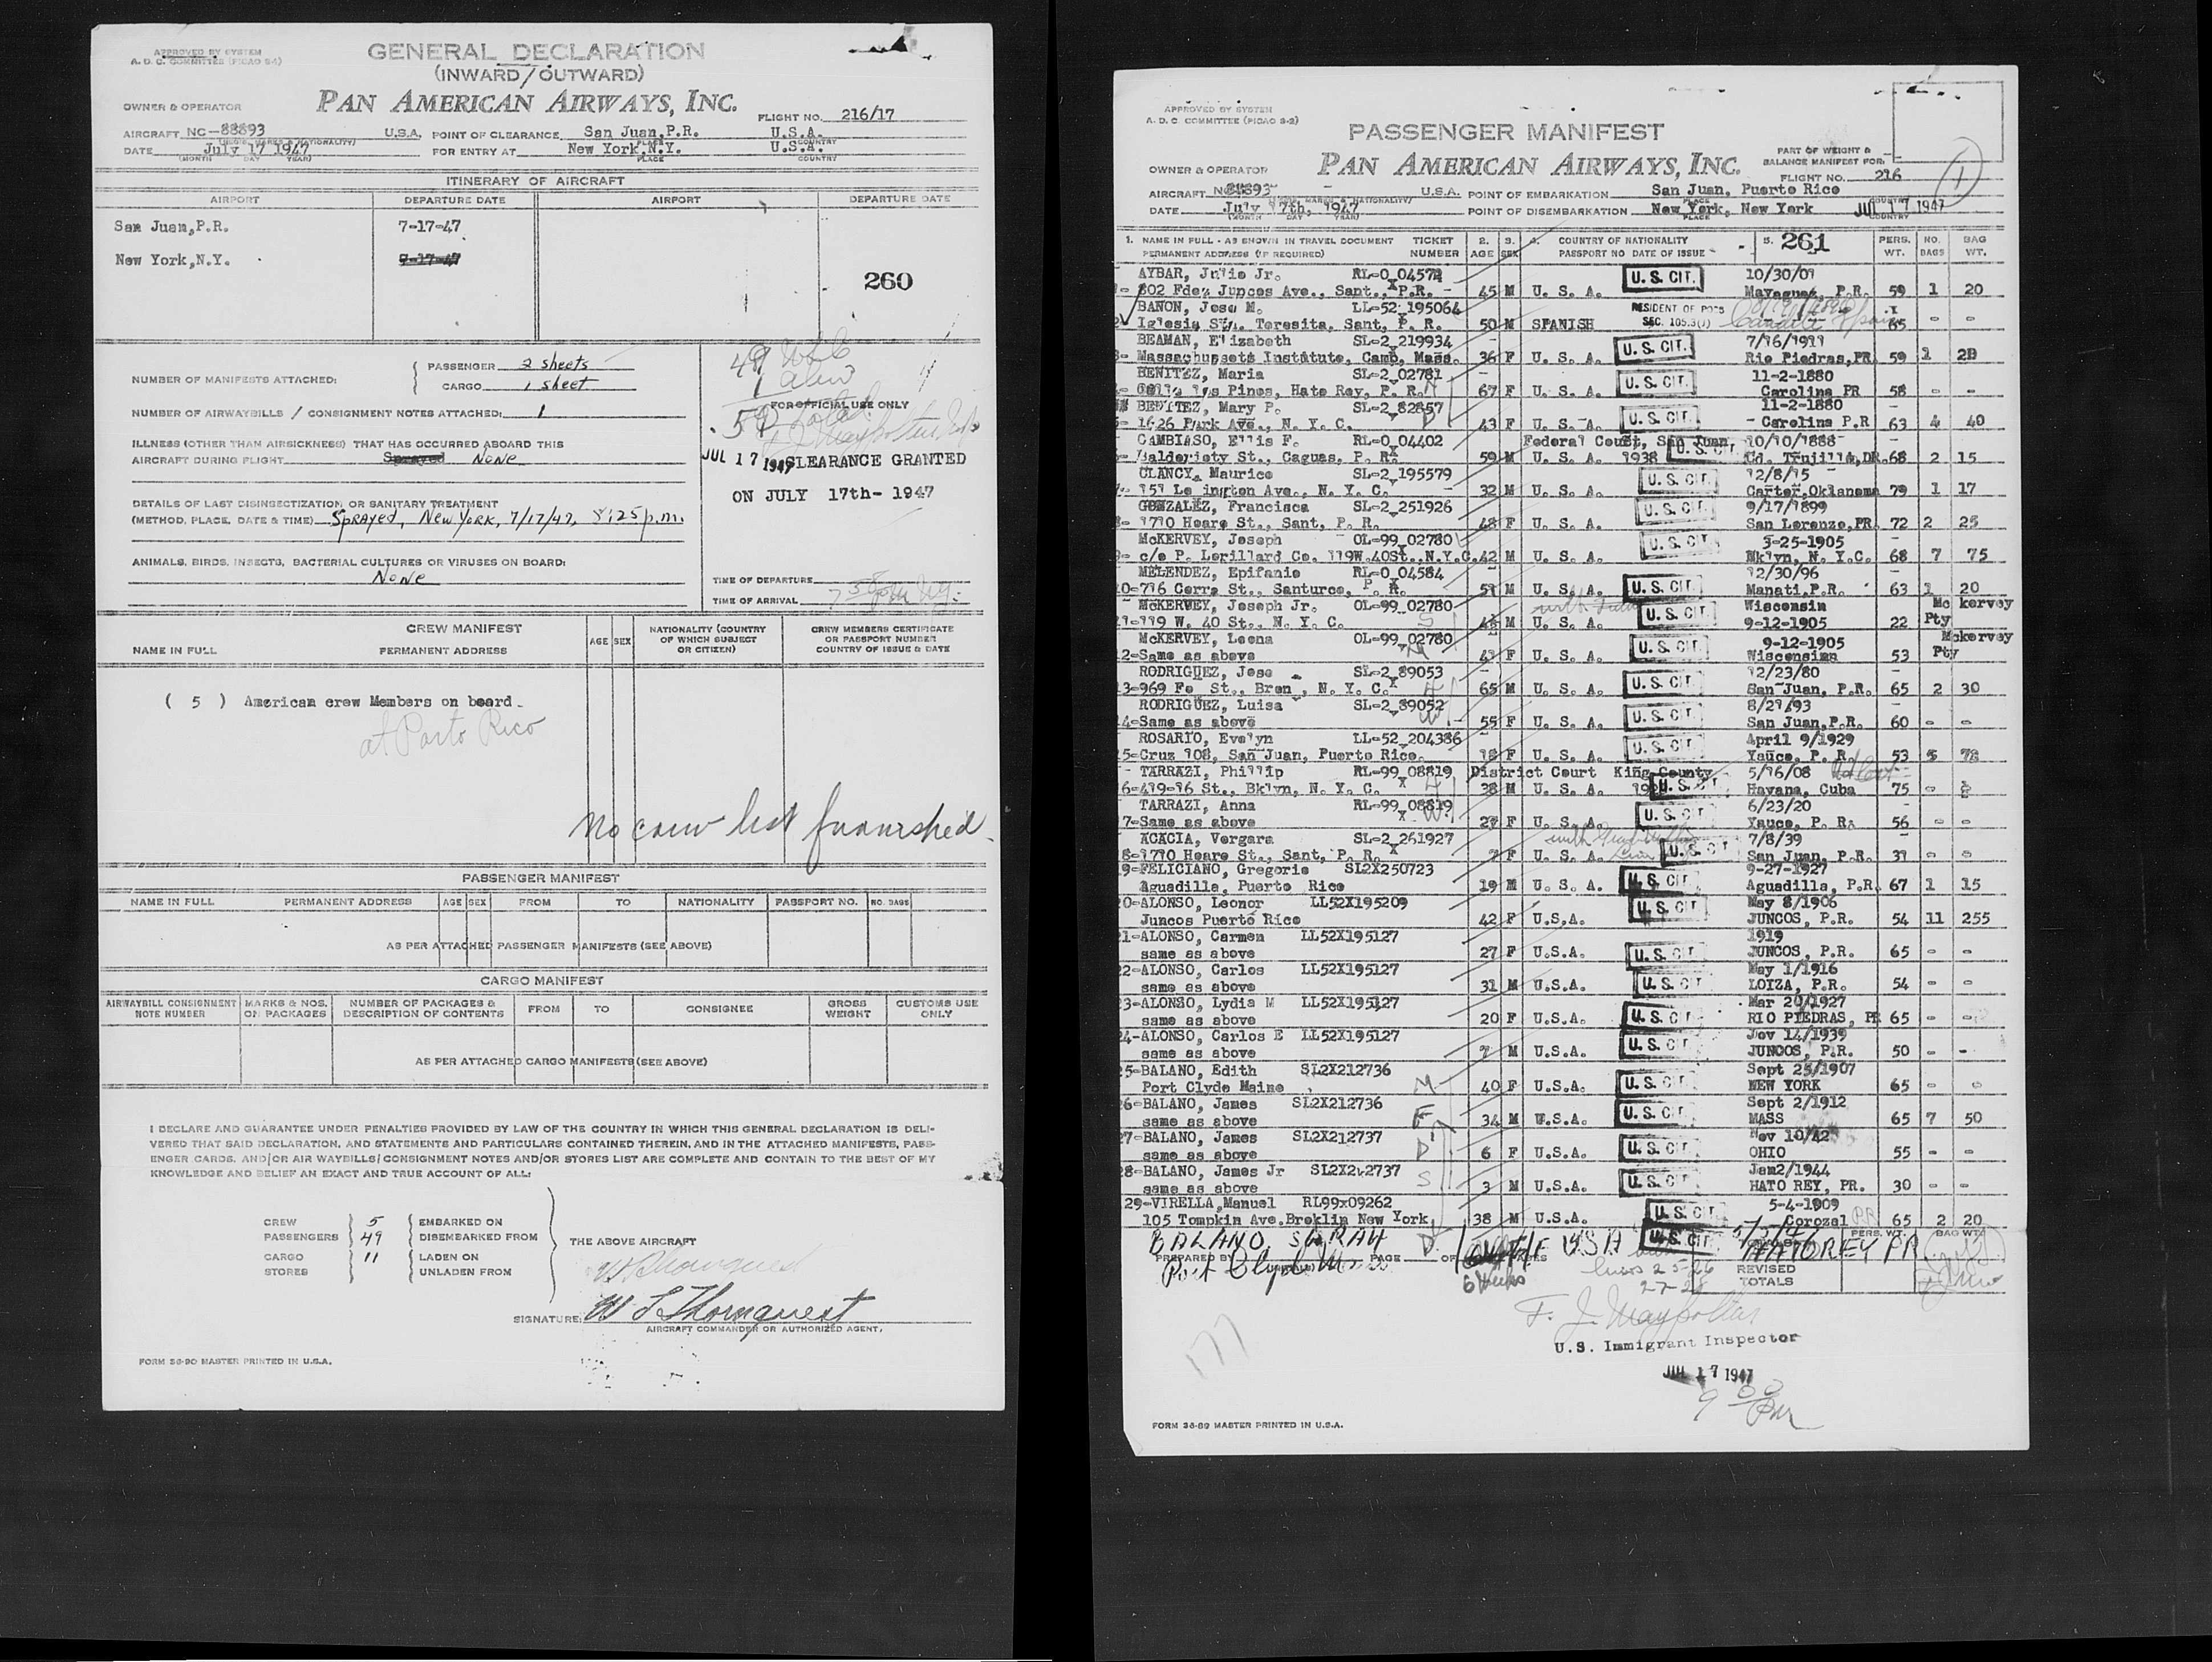 APPROVED BY SYSTEM
A. D. C. COMMITTEE (PICAO S-4)
GENERAL DECLARATION
(INWARD/OUTWARD)
PAN AMERICAN AIRWAYS, INC.
OWNER & OPERATOR
FLIGHT NO. 216/17
AIRCRAFT NC-88893 U.S.A. POINT OF CLEARANCE San Juan,P.R. U.S.A.
DATE July 17 1947 FOR ENTRY AT New York,N.Y. U.S.A.
(MONTH DAY YEAR) PLACE COUNTRY
ITINERARY OF AIRCRAFT
AIRPORT DEPARTURE DATE AIRPORT DEPARTURE DATE
San Juan,P.R. 7-17-47
New York,N.Y. 7-17-47
260
NUMBER OF MANIFESTS ATTACHED: PASSENGER 2 sheets
CARGO 1 sheet
FOR OFFICIAL USE ONLY
NUMBER OF AIRWAYBILLS / CONSIGNMENT NOTES ATTACHED: 1
ILLNESS (OTHER THAN AIRSICKNESS) THAT HAS OCCURRED ABOARD THIS
AIRCRAFT DURING FLIGHT Sprayed None
JUL 17 1947 CLEARANCE GRANTED
ON JULY 17th- 1947
DETAILS OF LAST DISINSECTIZATION OR SANITARY TREATMENT
(METHOD, PLACE, DATE & TIME) Sprayed, New York, 7/17/47, 8:25 p.m.
ANIMALS, BIRDS, INSECTS, BACTERIAL CULTURES OR VIRUSES ON BOARD:
None
TIME OF DEPARTURE
TIME OF ARRIVAL
CREW MANIFEST
NAME IN FULL PERMANENT ADDRESS AGE SEX NATIONALITY (COUNTRY OF WHICH SUBJECT OR CITIZEN) CREW MEMBERS CERTIFICATE OR PASSPORT NUMBER COUNTRY OF ISSUE & DATE
( 5 ) American crew Members on board
at Porto Rico
No crew list furnished
PASSENGER MANIFEST
NAME IN FULL PERMANENT ADDRESS AGE SEX FROM TO NATIONALITY PASSPORT NO. NO. BAGS
AS PER ATTACHED PASSENGER MANIFESTS (SEE ABOVE)
CARGO MANIFEST
AIRWAYBILL CONSIGNMENT NOTE NUMBER MARKS & NOS. ON PACKAGES NUMBER OF PACKAGES & DESCRIPTION OF CONTENTS FROM TO CONSIGNEE GROSS WEIGHT CUSTOMS USE ONLY
AS PER ATTACHED CARGO MANIFESTS (SEE ABOVE)
I DECLARE AND GUARANTEE UNDER PENALTIES PROVIDED BY LAW OF THE COUNTRY IN WHICH THIS GENERAL DECLARATION IS DELI-
VERED THAT SAID DECLARATION, AND STATEMENTS AND PARTICULARS CONTAINED THEREIN, AND IN THE ATTACHED MANIFESTS, PASS-
ENGER CARDS, AND/OR AIR WAYBILLS/CONSIGNMENT NOTES AND/OR STORES LIST ARE COMPLETE AND CONTAIN TO THE BEST OF MY
KNOWLEDGE AND BELIEF AN EXACT AND TRUE ACCOUNT OF ALL:
CREW 5 EMBARKED ON
PASSENGERS 49 DISEMBARKED FROM THE ABOVE AIRCRAFT
CARGO 11 LADEN ON
STORES UNLADEN FROM
SIGNATURE: W L Thornquest
AIRCRAFT COMMANDER OR AUTHORIZED AGENT.
FORM 36-90 MASTER PRINTED IN U.S.A.
APPROVED BY SYSTEM
A. D. C. COMMITTEE (PICAO S-2)
PASSENGER MANIFEST
PAN AMERICAN AIRWAYS, INC.
PART OF WEIGHT & BALANCE MANIFEST FOR:
OWNER & OPERATOR
FLIGHT NO. 216
AIRCRAFT NC88893 U.S.A. POINT OF EMBARKATION San Juan, Puerto Rico
DATE July 17th, 1947 POINT OF DISEMBARKATION New York, New York JUL 17 1947
1. NAME IN FULL - AS SHOWN IN TRAVEL DOCUMENT TICKET 2. 3. 4. COUNTRY OF NATIONALITY 5. 261 PERS. NO. BAG
PERMANENT ADDRESS (IF REQUIRED) NUMBER AGE SEX PASSPORT NO DATE OF ISSUE WT. BAGS WT.
AYBAR, Julio Jr. RL-0 04574 U.S. CIT. 10/30/01
802 Fdez Juncos Ave., Sant., P.R. 45 M U. S. A. Mayaguez, P.R. 59 1 20
BANON, Jose M. LL-52 195064 RESIDENT OF POSS
Iglesia Sta. Teresita, Sant, P. R. 50 M SPANISH SEC. 105.3(J) 65 - -
BEAMAN, Elizabeth SL-2 219934 U.S. CIT. 7/16/1911
3- Massachussets Institute, Camb, Mass. 36 F U. S. A. Rio Piedras,PR 59 1 20
BENITEZ, Maria SL-2 02781 U.S. CIT. 11-2-1880
Calle los Pinos, Hato Rey, P. R. 67 F U. S. A. Carolina PR 58 - -
BENITEZ, Mary P. SL-2 82857 U.S. CIT. 11-2-1880
1626 Park Ave., N. Y. C. 43 F U. S. A. Carolina P.R 63 4 40
CAMBIASO, Ellis F. RL-0 04402 Federal Court, San Juan, 10/10/1888
Balderioty St., Caguas, P. R. 59 M U. S. A. 1938 U.S. CIT. Cd. Trujillo,DR. 68 2 15
CLANCY, Maurice SL-2 195579 U.S. CIT. 12/8/15
32 M U. S. A. Carter,Oklahoma 79 1 17
GONZALEZ, Francisca SL-2 251926 U.S. CIT. 9/17/1899
1710 Hoare St., Sant, P. R. 48 F U. S. A. San Lorenzo,PR. 72 2 25
McKERVEY, Joseph OL-99 02780 U.S. CIT. 3-25-1905
9- c/o P. Lorillard Co. 119W.40St.,N.Y.C. 42 M U. S. A. Bklyn, N. Y.C. 68 7 75
MELENDEZ, Epifanio RL-0 04584 12/30/96
10-716 Cerra St., Santurce, P. R. 51 M U. S. A. U.S. CIT. Manati,P.R. 63 1 20
McKERVEY, Joseph Jr. OL-99 02780 Wisconsin Mc kervey
11-119 W. 40 St., N. Y. C. M U. S. A. U.S. CIT. 9-12-1905 22 Pty
McKERVEY, Leona OL-99 02780 9-12-1905 Mckervey
12-Same as above 41 F U. S. A. U.S. CIT. Wisconsin 53 Pty
RODRIGUEZ, Jose SL-2 89053 12/23/80
13-969 Fo St., Bron, N. Y. C. 65 M U. S. A. U.S. CIT. San Juan, P.R. 65 2 30
RODRIGUEZ, Luisa SL-2 89052 8/21/93
14-Same as above 55 F U. S. A. U.S. CIT. San Juan,P.R. 60 - -
ROSARIO, Evelyn LL-52 204386 April 9/1929
15-Cruz 108, San Juan, Puerto Rico 18 F U. S. A. U.S. CIT. Yauco, P. R. 53 5 78
TARRAZI, Phillip RL-99 08819 District Court King County 5/16/08
16-419-16 St., Bklyn, N. Y. C. 38 M U. S. A. U.S. CIT. Havana, Cuba 75 -
TARRAZI, Anna RL-99 08819 6/23/20
17-Same as above 27 F U. S. A. U.S. CIT. Yauco, P. R. 56 - -
ACACIA, Vergara SL-2 261927 7/8/39
18-1710 Hoare St., Sant, P. R. 7 F U. S. A. U.S. CIT. San Juan, P.R. 31 - -
19-FELICIANO, Gregorio SL2X250723 9-27-1927
Aguadilla, Puerto Rico 19 M U. S. A. U.S. CIT. Aguadilla, P.R. 67 1 15
20-ALONSO, Leonor LL52X195209 May 8/1906
Juncos Puerto Rico 42 F U.S.A. U.S. CIT. JUNCOS, P.R. 54 11 255
21-ALONSO, Carmen LL52X195127 1919
same as above 27 F U.S.A. U.S. CIT. JUNCOS, P.R. 65 - -
22-ALONSO, Carlos LL52X195127 May 1/1916
same as above 31 M U.S.A. U.S. CIT. LOIZA, P.R. 54 - -
23-ALONSO, Lydia M LL52X195127 Mar 20/1927
same as above 20 F U.S.A. U.S. CIT. RIO PIEDRAS, PR 65 - -
24-ALONSO, Carlos E LL52X195127 Nov 14/1939
same as above 7 M U.S.A. U.S. CIT. JUNCOS, P.R. 50 - -
25-BALANO, Edith SL2X212736 Sept 25/1907
Port Clyde Maine M 40 F U.S.A. U.S. CIT. NEW YORK 65 - -
26-BALANO, James SL2X212736 Sept 2/1912
same as above F 34 M U.S.A. U.S. CIT. MASS 65 7 50
27-BALANO, James SL2X212737 Nov 10/42
same as above D 6 F U.S.A. U.S. CIT. OHIO 55 - -
28-BALANO, James Jr SL2X212737 Jan2/1944
same as above S 3 M U.S.A. U.S. CIT. HATO REY, PR. 30 - -
29-VIRELLA,Manuel RL99x09262 5-4-1909
105 Tompkin Ave.Broklin New York 38 M U.S.A. U.S. CIT. Corozal PR 65 2 20
BALANO SARAH D F USA U.S. CIT. HATO REY PR
PREPARED BY PAGE OF PERS. WT. BAG WT.
Port Clyde 6 Weeks
REVISED TOTALS
177
F. J. Mayholtus
U.S. Immigrant Inspector
JUL 17 1947
9 00 PM
FORM 36-89 MASTER PRINTED IN U.S.A.